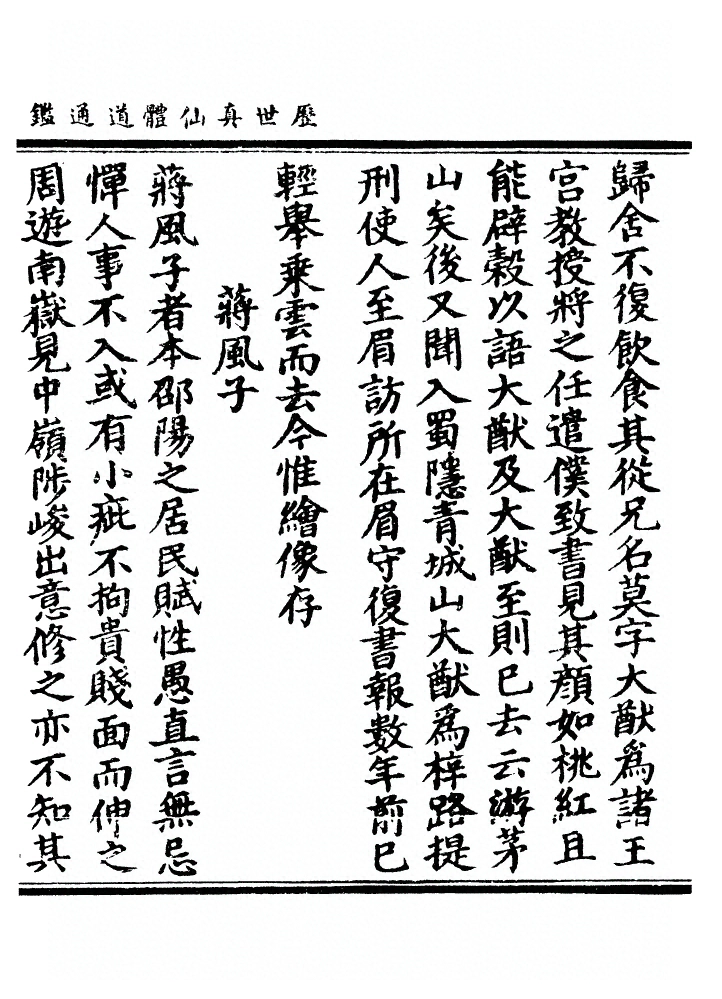 歷世真仙體道通鑑
歸舍不復飲食其從兄名莫字大猷為諸王
宮教授將之任遣僕致書見其顏如桃紅且
能辟穀以語大猷及大猷至則已去云游茅
山矣後又聞入蜀隱青城山大猷為梓路提
刑使人至眉訪所在眉守復書報數年前已
輕舉乘雲而去今惟繪像存
蔣風子
蔣風子者本邵陽之居民賦性愚直言無忌
憚人事不入或有小疵不拘貴賤面而伸之
周遊南嶽見中嶺陟峻出意修之亦不知其